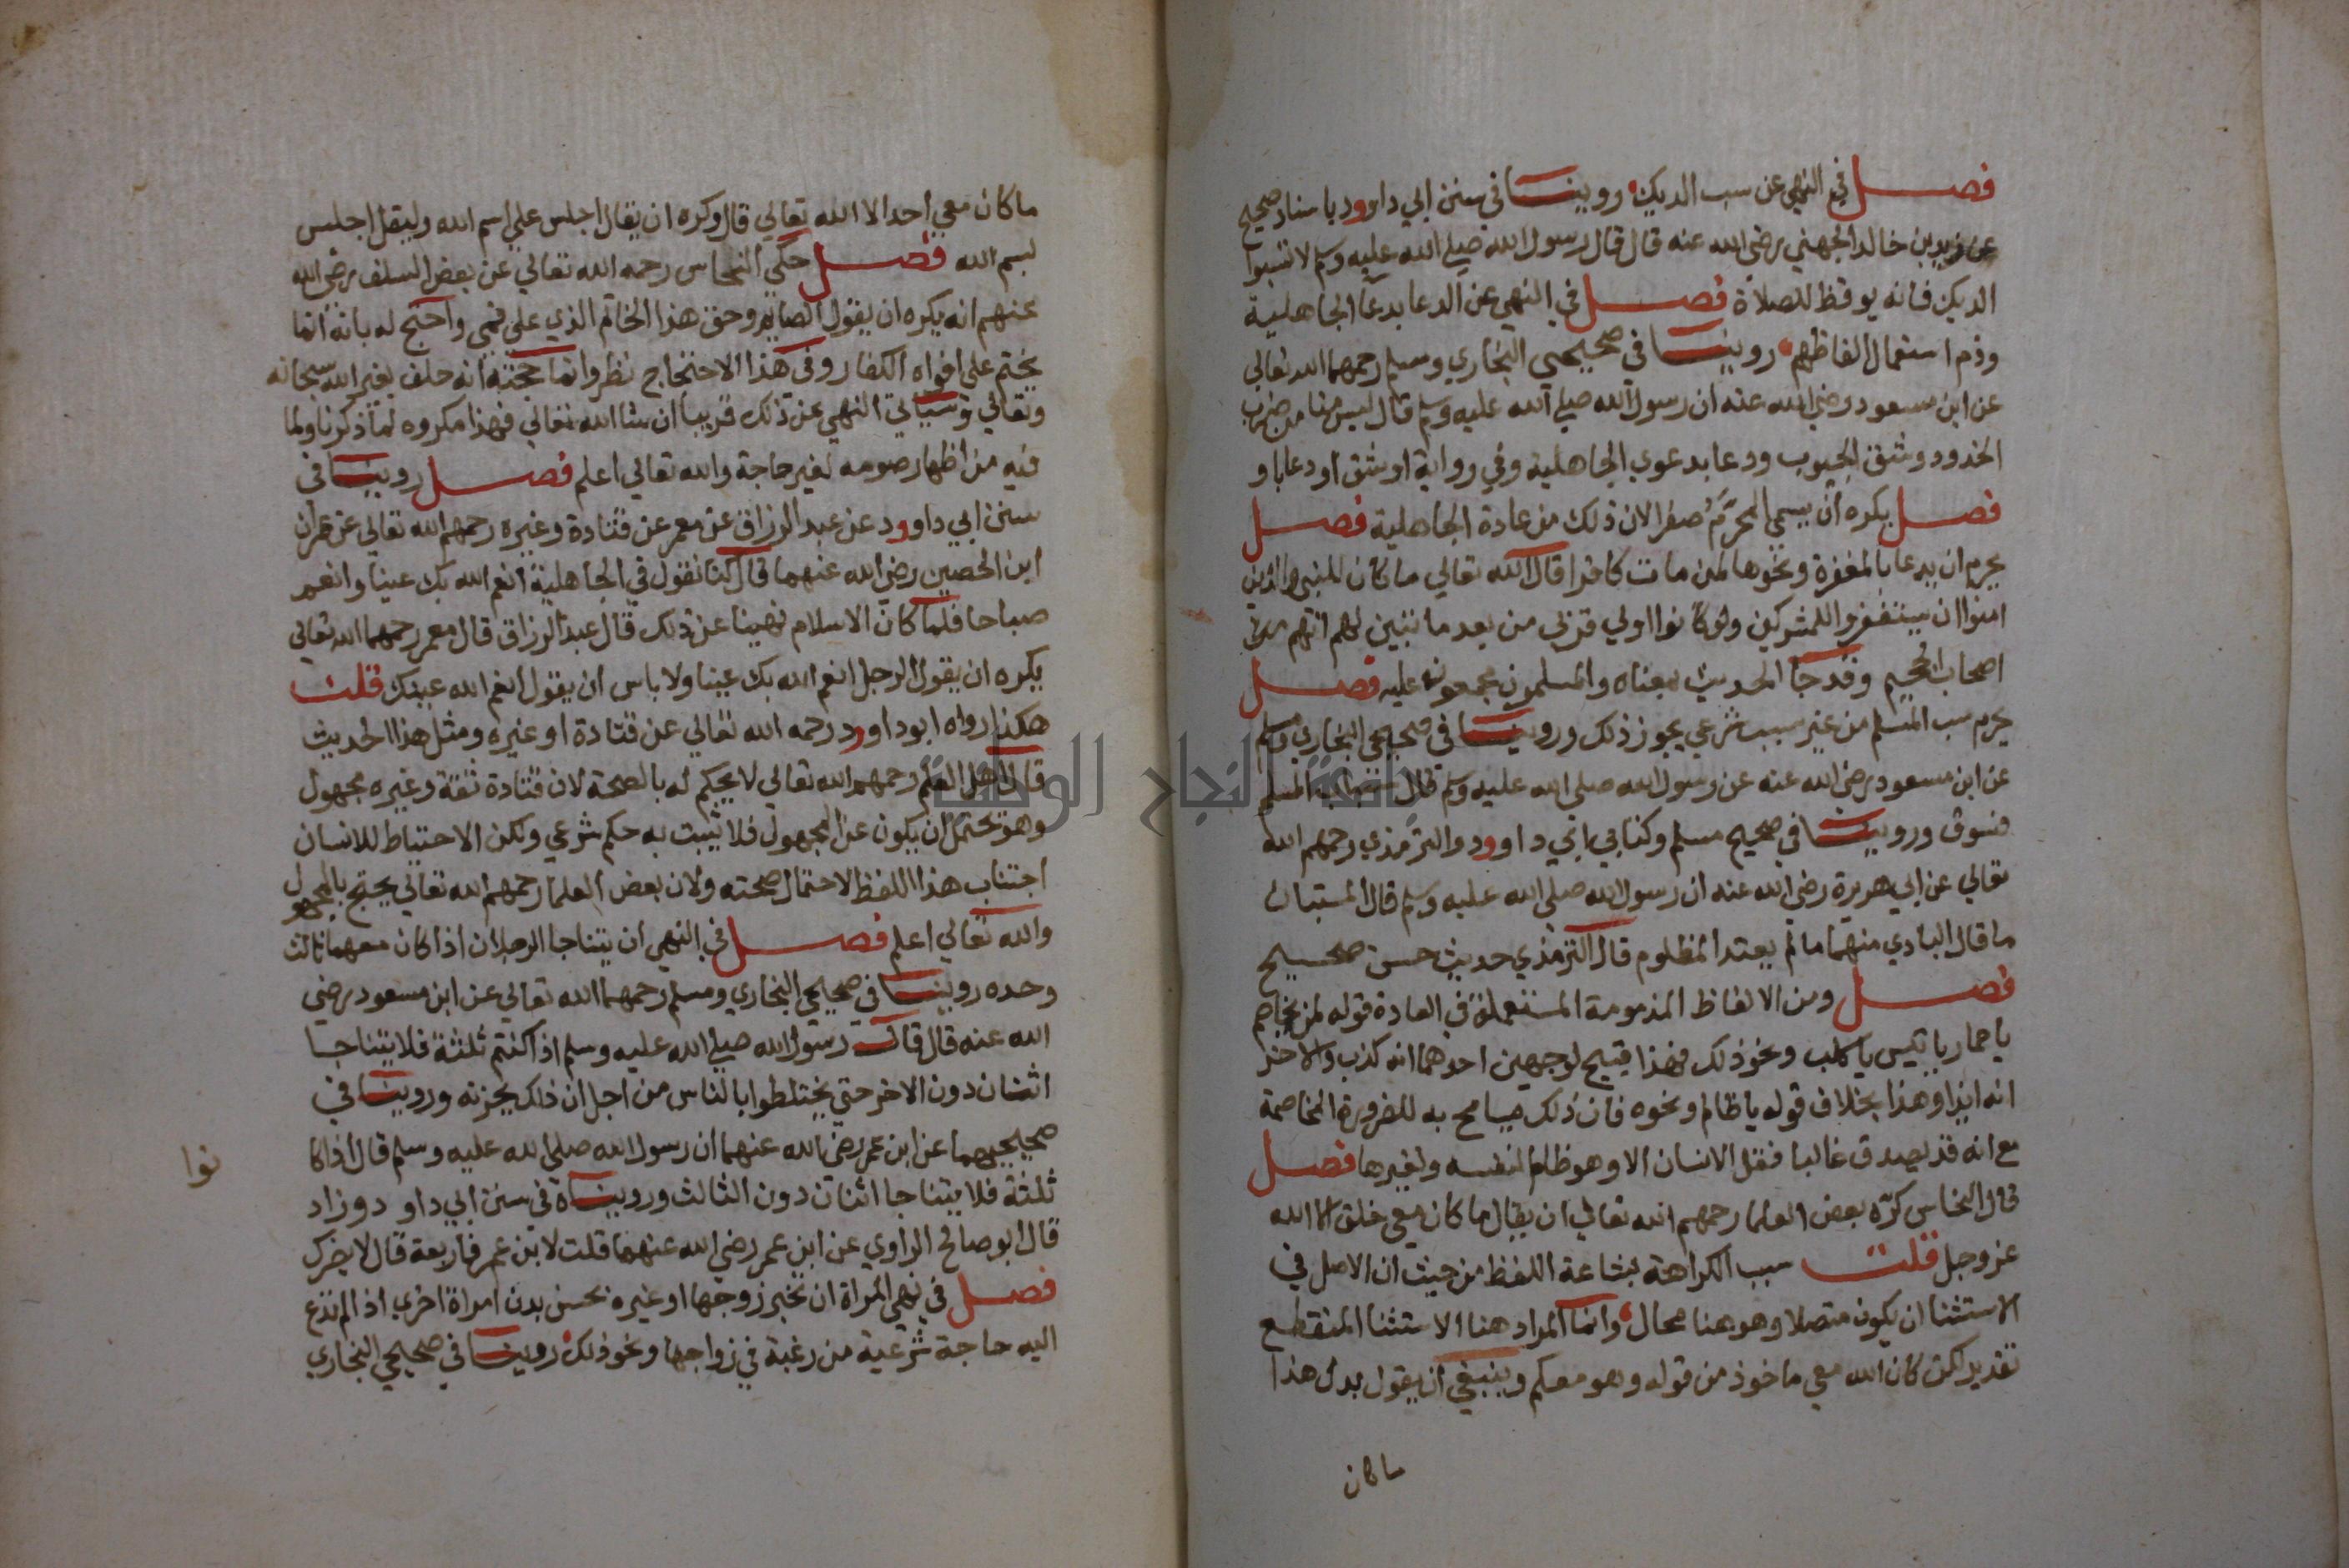 فصل في النهي عن سب الديك روينا في سنن ابي داوود باسناد صحيح
عن زيد بن خالد الجهني رضي الله عنه قال قال رسول الله صلي الله عليه وسلم لا تسبوا
الديك فانه يوقظ للصلاة فصل في النهي عن الدعا بدعا الجاهلية
وذم استعمال الفاظهم روينا في صحيحي البخاري ومسلم رحمهما الله تعالي
عن ابن مسعود رضي الله عنه ان رسول الله صلي الله عليه وسلم قال ليس منا من ضرب
الخدود وشق الجيوب ودعا بدعوي الجاهلية وفي رواية او شق او دعا باو
فصل يكره ان يسمي المحرَّمُ صفرا لان ذلك من عادة الجاهلية فصل
يحرم ان يدعا بالمغفرة ونحوها لمن مات كافرا قال الله تعالي ما كان للنبي والذين
امنوا ان يستغفروا للمشركين ولو كانوا اولي قربي من بعد ما تبين لهم انهم
اصحاب الجحيم وقد جا الحديث بمعناه والمسلمون مجمعون عليه فصل
يحرم سب المسلم من غير سبب شرعي يجوز ذلك وروينا في صحيحي البخاري ومسلم
عن ابن مسعود رضي الله عنه عن رسول الله صلي الله عليه وسلم قال سباب المسلم
فسوق وروينا في صحيح مسلم وكتابي ابي داوود والترمذي رحمهم الله
تعالي عن ابي هريرة رضي الله عنه ان رسول الله صلي الله عليه وسلم قال المستبان
ما قال البادي منهما ما لم يعتد المظلوم قال الترمذي حديث حسن صحيح
فصل ومن الالفاظ المذمومة المستعملة في العادة قوله لمن يخاصم
يا حمار يا تيس يا كلب ونحو ذلك فهذا قبيح لوجهين احدهما انه كذب والاخر
انه ايذا وهذا بخلاف قوله يا ظالم ونحوه فان ذلك يسامح به للضرورة المخاصمة
مع انه قد يصدق غالبا فقل الانسان الا وهو ظالم لنفسه ولغيرها فصل
قال النحاس كرّه بعض العلما رحمهم الله تعالي ان يقال ما كان معي خلق الا الله
عز وجل قلت سبب الكراهة بشاعة اللفظ من حيث ان الاصل في
الاستثنا ان يكون متصلا وهو هنا محال وانما المراد هنا الاستثنا المنقطع
تقديره لكن كان الله معي ماخوذ من قوله وهو معكم وينبغي ان يقول بدل هذا
ما كان
ما كان معي احد الا الله تعالي قال وكره ان يقال اجلس علي اسم الله وليقل اجلس
بسم الله فصل حكي النحاس رحمه الله تعالي عن بعض السلف رضي الله
عنهم انه يكره ان يقول الصايم وحق هذا الخاتم الذي علي فمي واحتج له بانه انما
يختم علي افواه الكفار وفي هذا الاحتجاج نظر وانما حجته انه حلف بغير الله سبحانه
وتعالي وسياتي النهي عن ذلك قريبا ان شا الله تعالي فهذا مكروه لما ذكرنا ولما
فيه من اظهار صومه لغير حاجة والله تعالي اعلم فصل روينا في
سنن ابي داوود عن عبد الرزاق عن معمر عن قتادة وغيره رحمهم الله تعالي عن عمران
ابن الحصين رضي الله عنهما قال كنا نقول في الجاهلية انعم الله بك عينا وانعم
صباحا فلما كان الاسلام نهينا عن ذلك قال عبد الرزاق قال معمر رحمهما الله تعالي
يكره ان يقول الرجل انعم الله بك عينا ولا باس ان يقول انعم الله عينك قلت
هكذا رواه ابو داوود رحمه الله تعالي عن قتادة او غيره ومثل هذا الحديث
قال اهل العلم رحمهم الله تعالي لا يحكم له بالصحة لان قتادة ثقة وغيره مجهول
وهو محتمل ان يكون عن المجهول فلا يثبت به حكم شرعي ولكن الاحتياط للانسان
اجتناب هذا اللفظ لاحتمال صحته ولان بعض العلما رحمهم الله تعالي يحتج بالمجهول
والله تعالي اعلم فصل في النهي ان يتناجا الرجلان اذا كان معهما ثالث
وحده روينا في صحيحي البخاري ومسلم رحمهما الله تعالي عن ابن مسعود رضي
الله عنه قال قال رسول الله صلي الله عليه وسلم اذا كنتم ثلثة فلا يتناجا
اثنان دون الاخر حتي يختلطوا بالناس من اجل ان ذلك يحزنه وروينا في
صحيحيهما عن ابن عمر رضي الله عنهما ان رسول الله صلي الله عليه وسلم قال اذا كا
نوا
ثلثة فلا يتناجا اثنان دون الثالث ورويناه في سنن ابي داود وزاد
قال ابو صالح الراوي عن ابن عمر رضي الله عنهما قلت لابن عمر فاربعة قال لا يضرك
فصل في نهي المراة ان تخبر زوجها او غيره بحسن بدن امراة اخري اذا لم تدع
اليه حاجة شرعية من رغبة في زواجها ونحو ذلك روينا في صحيحي البخاري
جامعة النجاح الوطنية